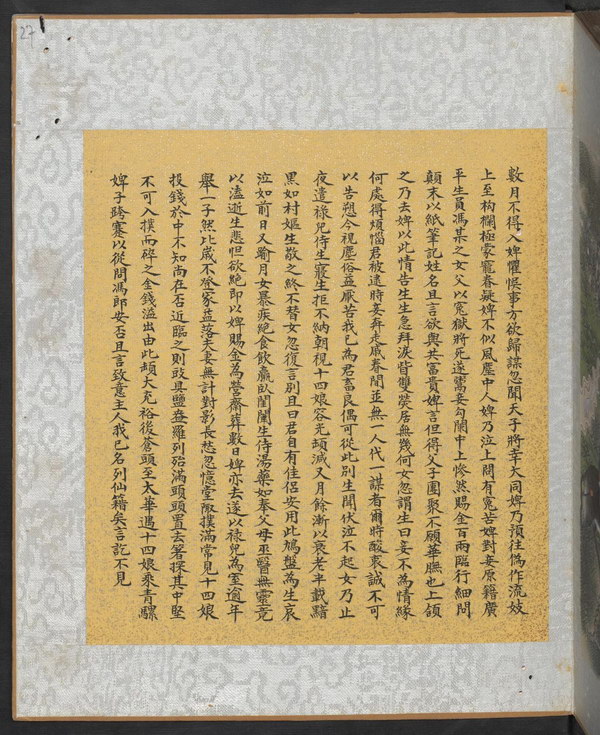 數月不得入婢懼悞事方欲歸謀忽聞天子將幸大同婢乃預往偽作流妓
上至构欄極蒙寵眷疑婢不似風塵中人婢乃泣上問有寃苦婢對妾原籍廣
平生員馮某之女父以寃獄將死遂鬻妾勾闌中上慘然賜金百兩臨行細問
顛末以紙筆記姓名且言欲與共富貴婢言但得父子團聚不願華膴也上頷
之乃去婢以此情告生生急拜淚眥雙熒居無幾何女忽謂生曰妾不為情緣
何處得煩惱君被逮時妾奔走戚眷間並無一人代一謀者爾時酸衷誠不可
以告愬今視塵俗益厭苦我已為君畜良偶可從此別生聞伏泣不起女乃止
夜遣祿兒侍生寢生拒不納朝視十四娘容光頓減又月餘漸以衰老半載黯
黑如村嫗生敬之終不替女忽復言別且曰君自有佳侶安用此鳩盤為生哀
泣如前日又踰月女暴疾絕食飲羸臥閨闥生侍湯藥如奉父母巫醫無靈竟
以溘逝生悲怛欲絕即以婢賜金為營齋葬數日婢亦去遂以祿兒為室逾年
舉一子然比歲不登家益落夫妻無計對影長愁忽憶堂陬撲滿常見十四娘
投錢於中不知尚在否近臨之則豉具鹽盎羅列殆滿頭頭置去箸探其中堅
不可入撲而碎之金錢溢出由此頓大充裕後蒼頭至太華遇十四娘乘青騾
婢子跨蹇以從問馮郎安否且言致意主人我已名列仙籍矣言訖不見
27